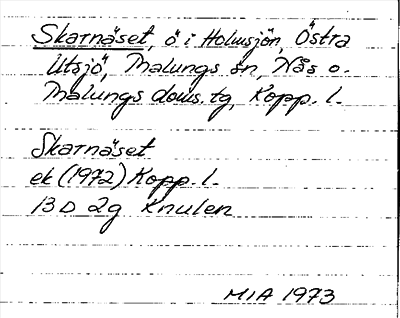 Skarnäset, ö i Holmsjön, Östra
Utsjö, Malungs sn, Nås o.
Malungs doms.tg, Kopp. l.
Skarnäset
ek (1972) Kopp. l.
13 D 2g Knulen
MIA 1973